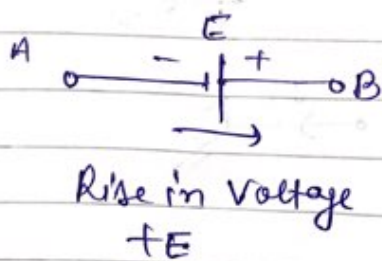 E
A - + B
Rise in Voltage
+E